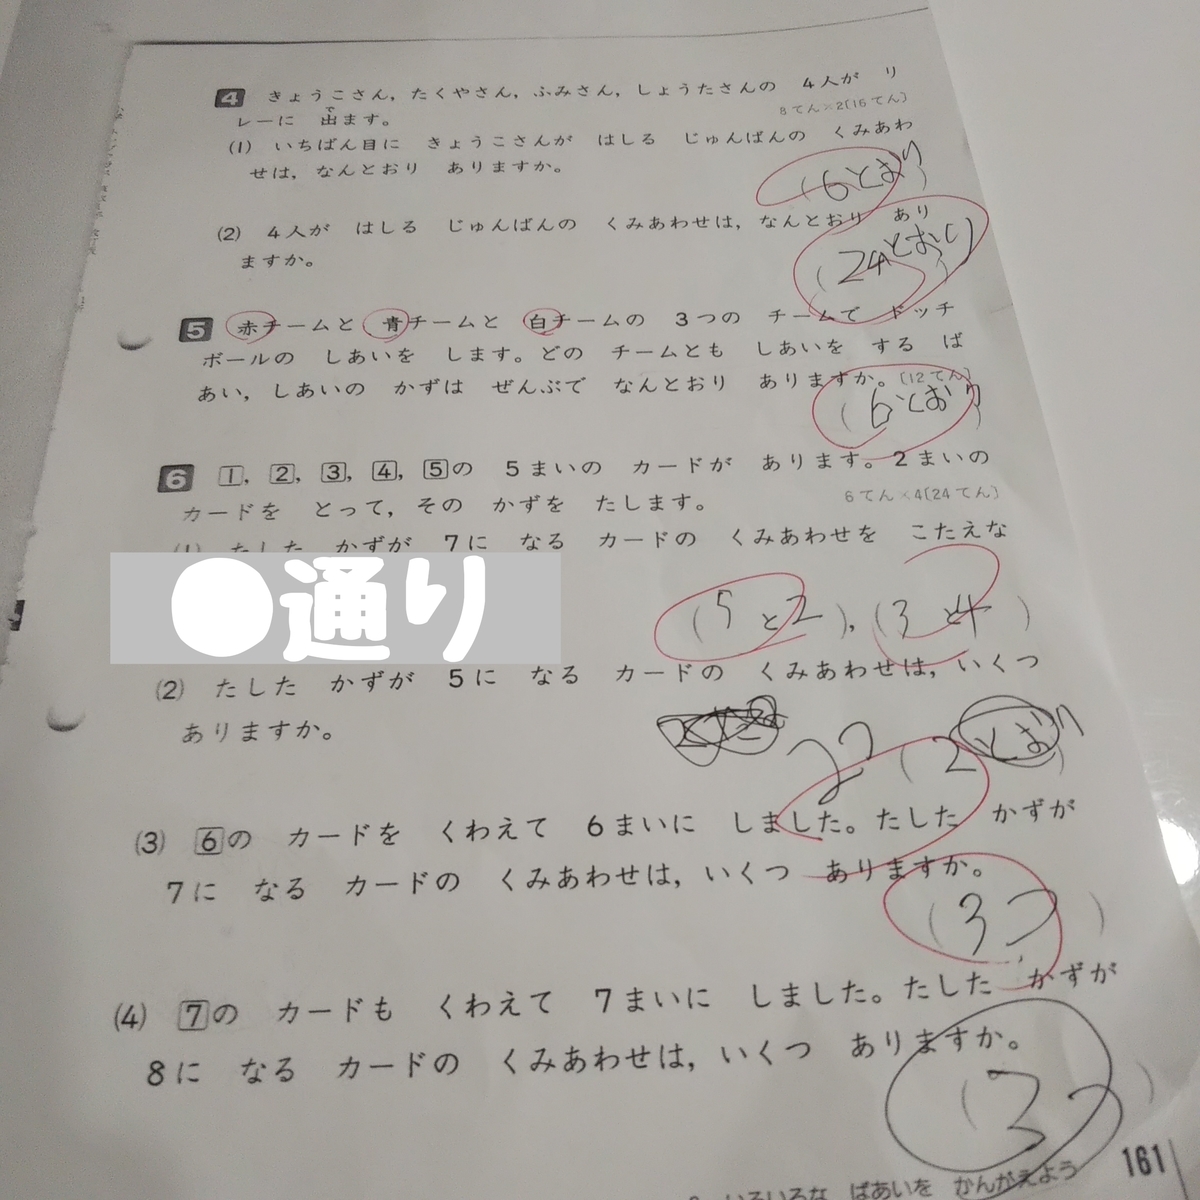 4 きょうこさん，たくやさん，ふみさん，しょうたさんの 4人が リ
レーに 出ます。
で
8てん×2〔16てん〕
(1) いちばん目に きょうこさんが はしる じゅんばんの くみあわ
せは，なんとおり ありますか。
(6とおり)
(2) 4人が はしる じゅんばんの くみあわせは，なんとおり あり
ますか。
(24とおり)
5 赤チームと 青チームと 白チームの 3つの チームで ドッチ
ボールの しあいを します。どの チームとも しあいを する ば
あい，しあいの かずは ぜんぶで なんとおり ありますか。〔12てん〕
(6とおり)
6 1，2，3，4，5の 5まいの カードが あります。2まいの
カードを とって，その かずを たします。
6てん×4〔24てん〕
(1) たした かずが 7に なる カードの くみあわせを こたえな
●通り
(5と2)，(3と4)
(2) たした かずが 5に なる カードの くみあわせは，いくつ
ありますか。
(2とおり)
(3) 6の カードを くわえて 6まいに しました。たした かずが
7に なる カードの くみあわせは，いくつ ありますか。
(3つ)
(4) 7の カードも くわえて 7まいに しました。たした かずが
8に なる カードの くみあわせは，いくつ ありますか。
(3つ)
いろいろな ばあいを かんがえよう 161